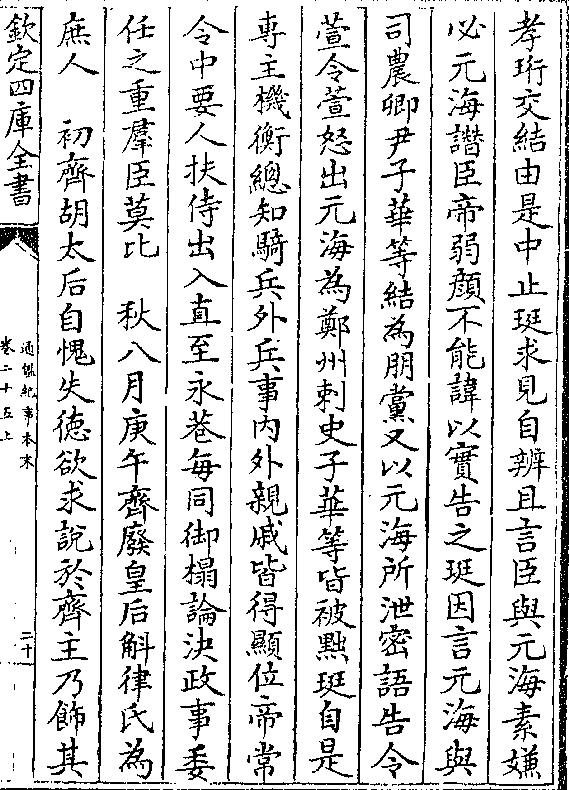 孝珩交結由是中止珽求見自辨且言臣與元海素嫌
必元海譖臣帝弱顏不能諱以實告之珽因言元海與
司農卿尹子華等結為朋黨又以元海所泄密語告令
萱令萱怒出元海為鄭州刺史子華等皆被黜珽自是
專主機衡總知騎兵外兵事内外親戚皆得顯位帝常
令中要人扶侍出入直至永巷每同御榻論決政事委
任之重羣臣莫比　秋八月庚午齊廢皇后斛律氏為
庶人　初齊胡太后自愧失德欲求說於齊主乃飾其
欽定四庫全書
通鑑紀事本末
卷二十五上
二十